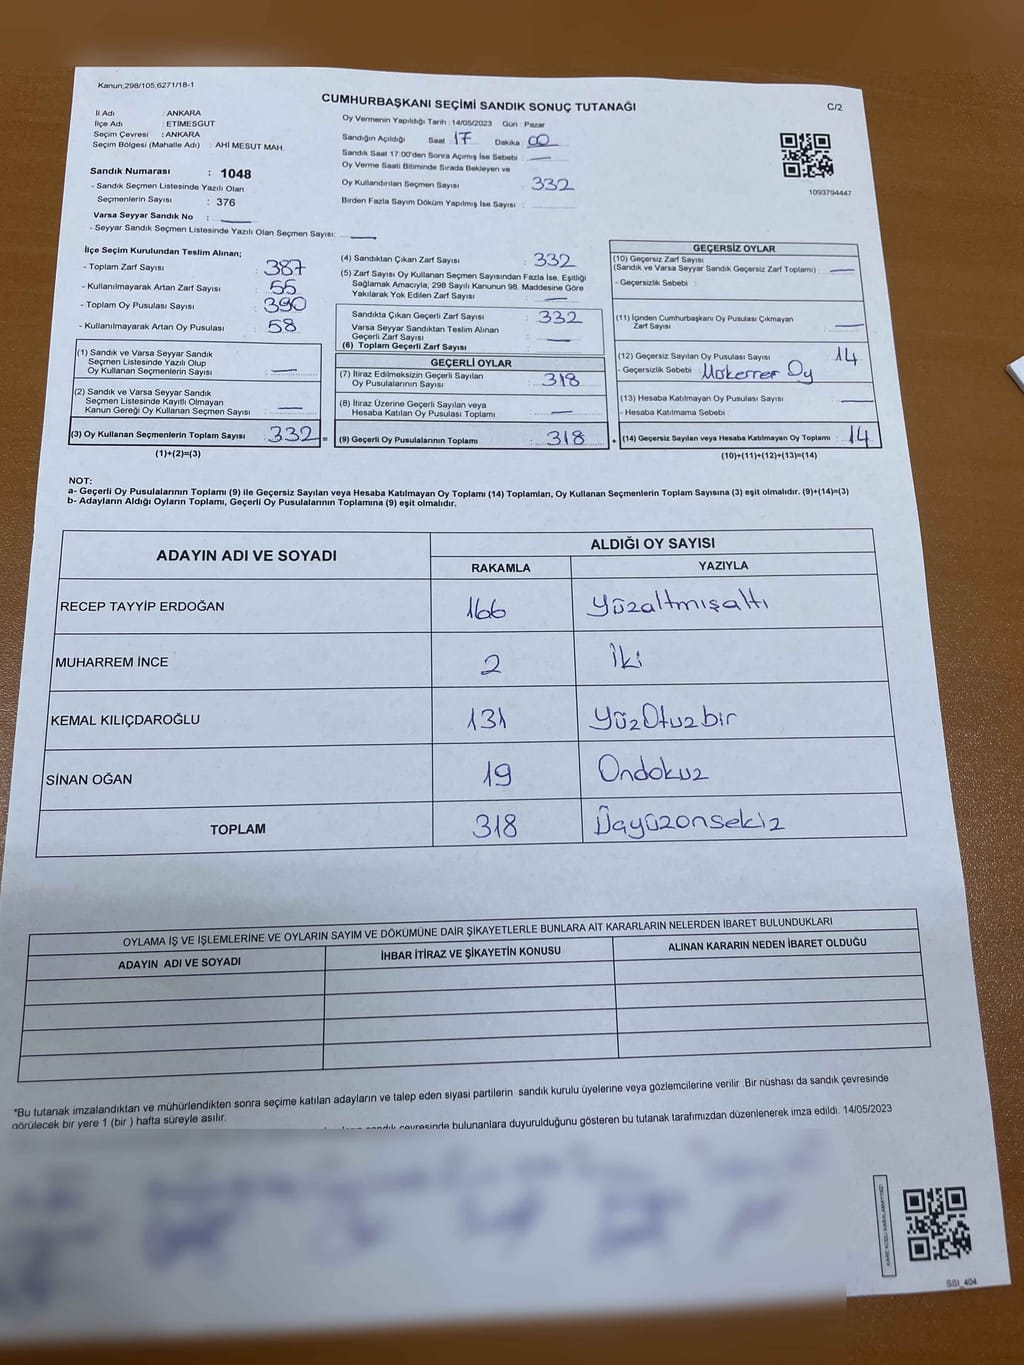 Kanun:298/105,6271/18-1
CUMHURBAŞKANI SEÇİMİ SANDIK SONUÇ TUTANAĞI
C/2
İl Adı : ANKARA
İlçe Adı : ETİMESGUT
Seçim Çevresi : ANKARA
Seçim Bölgesi (Mahalle Adı) : AHİ MESUT MAH.
Sandık Numarası : 1048
- Sandık Seçmen Listesinde Yazılı Olan
Seçmenlerin Sayısı : 376
Varsa Seyyar Sandık No :
- Seyyar Sandık Seçmen Listesinde Yazılı Olan Seçmen Sayısı:
Oy Vermenin Yapıldığı Tarih : 14/05/2023 Gün : Pazar
Sandığın Açıldığı Saat 17 Dakika 00
Sandık Saat 17:00'den Sonra Açımış İse Sebebi :
Oy Verme Saati Bitiminde Sırada Bekleyen ve
Oy Kullandırılan Seçmen Sayısı : 332
Birden Fazla Sayım Döküm Yapılmış İse Sayısı :
1093794447
İlçe Seçim Kurulundan Teslim Alınan;
- Toplam Zarf Sayısı : 387
- Kullanılmayarak Artan Zarf Sayısı : 55
- Toplam Oy Pusulası Sayısı : 390
- Kullanılmayarak Artan Oy Pusulası : 58
(1) Sandık ve Varsa Seyyar Sandık
Seçmen Listesinde Yazılı Olup
Oy Kullanan Seçmenlerin Sayısı :
(2) Sandık ve Varsa Seyyar Sandık
Seçmen Listesinde Kayıtlı Olmayan
Kanun Gereği Oy Kullanan Seçmen Sayısı :
(3) Oy Kullanan Seçmenlerin Toplam Sayısı : 332 =
(1)+(2)=(3)
(4) Sandıktan Çıkan Zarf Sayısı : 332
(5) Zarf Sayısı Oy Kullanan Seçmen Sayısından Fazla İse, Eşitliği
Sağlamak Amacıyla, 298 Sayılı Kanunun 98. Maddesine Göre
Yakılarak Yok Edilen Zarf Sayısı :
Sandıkta Çıkan Geçerli Zarf Sayısı : 332
Varsa Seyyar Sandıktan Teslim Alınan
Geçerli Zarf Sayısı :
(6) Toplam Geçerli Zarf Sayısı
GEÇERLİ OYLAR
(7) İtiraz Edilmeksizin Geçerli Sayılan
Oy Pusulalarının Sayısı : 318
(8) İtiraz Üzerine Geçerli Sayılan veya
Hesaba Katılan Oy Pusulası Toplamı :
(9) Geçerli Oy Pusulalarının Toplamı : 318 +
GEÇERSİZ OYLAR
(10) Geçersiz Zarf Sayısı
(Sandık ve Varsa Seyyar Sandık Geçersiz Zarf Toplamı) :
- Geçersizlik Sebebi :
(11) İçinden Cumhurbaşkanı Oy Pusulası Çıkmayan
Zarf Sayısı :
(12) Geçersiz Sayılan Oy Pusulası Sayısı : 14
- Geçersizlik Sebebi : Mükerrer Oy
(13) Hesaba Katılmayan Oy Pusulası Sayısı :
- Hesaba Katılmama Sebebi :
(14) Geçersiz Sayılan veya Hesaba Katılmayan Oy Toplamı : 14
(10)+(11)+(12)+(13)=(14)
NOT:
a- Geçerli Oy Pusulalarının Toplamı (9) ile Geçersiz Sayılan veya Hesaba Katılmayan Oy Toplamı (14) Toplamları, Oy Kullanan Seçmenlerin Toplam Sayısına (3) eşit olmalıdır. (9)+(14)=(3)
b- Adayların Aldığı Oyların Toplamı, Geçerli Oy Pusulalarının Toplamına (9) eşit olmalıdır.
ADAYIN ADI VE SOYADI
ALDIĞI OY SAYISI
RAKAMLA YAZIYLA
RECEP TAYYİP ERDOĞAN 166 Yüzaltmışaltı
MUHARREM İNCE 2 İki
KEMAL KILIÇDAROĞLU 131 YüzOtuzbir
SİNAN OĞAN 19 Ondokuz
TOPLAM 318 Üçyüzonsekiz
OYLAMA İŞ VE İŞLEMLERİNE VE OYLARIN SAYIM VE DÖKÜMÜNE DAİR ŞİKAYETLERLE BUNLARA AİT KARARLARIN NELERDEN İBARET BULUNDUKLARI
ADAYIN ADI VE SOYADI İHBAR İTİRAZ VE ŞİKAYETİN KONUSU ALINAN KARARIN NEDEN İBARET OLDUĞU
*Bu tutanak imzalandıktan ve mühürlendikten sonra seçime katılan adayların ve talep eden siyasi partilerin sandık kurulu üyelerine veya gözlemcilerine verilir .Bir nüshası da sandık çevresinde
görülecek bir yere 1 (bir ) hafta süreyle asılır.
sandık çevresinde bulunanlara duyurulduğunu gösteren bu tutanak tarafımızdan düzenlenerek imza edildi. 14/05/2023
SSİ_404